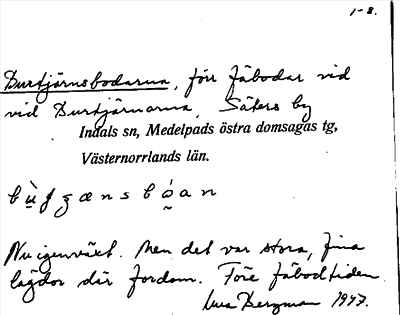 1-8.
Burtjärnsbodarna, förr fäbodar vid
vid Burtjärnarna, Säters by
Indals sn, Medelpads östra domsagas tg,
Västernorrlands län.
Nu igenväxt. Men det var stora, fina
lägdor där fordom. Före fäbodtiden.
Bergman 1947.